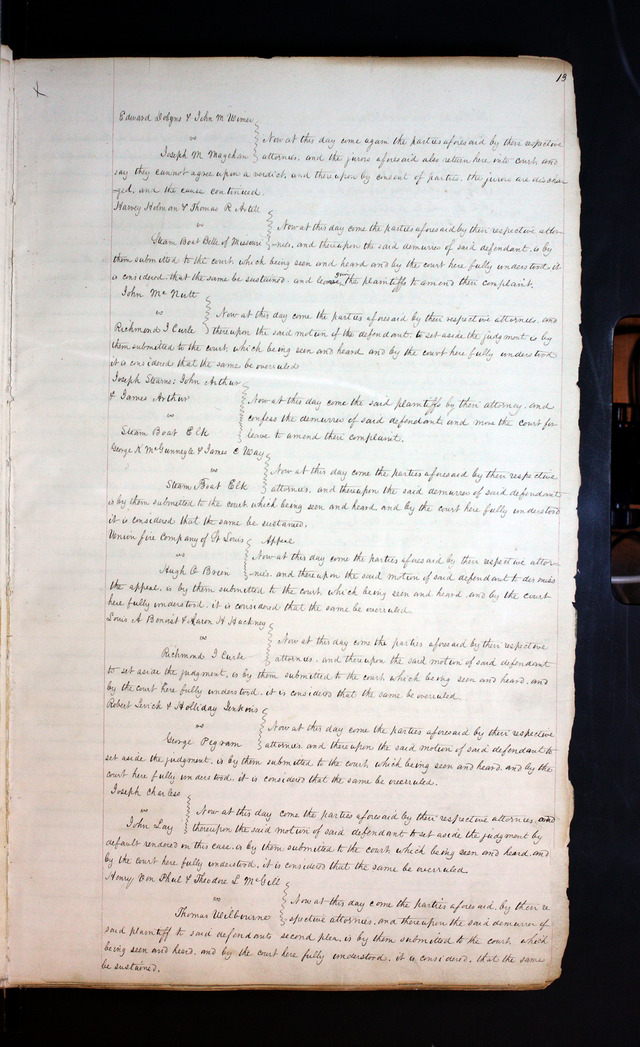 13
Edward Dobyns & John M Wimer
vs
Joseph M. Magehan
Now at this day come again the parties aforesaid by their respective
attornies, and the jurors aforesaid also return here into court, and
say they cannot agree upon a verdict, and thereupon by consent of parties, the jurors are dischar-
ged, and the cause continued.
Harvey Holman & Thomas R
vs
Steam Boat Belle of Missouri
Now at this day come the parties aforesaid by their respective attor-
-nies, and thereupon the said demurrer of said defendant, is by
them submitted to the court, which being seen and heard and by the court here fully understood, it
is considered that the same be sustained, and leave the plaintiffs to amend their complaint.
John McNutt
vs
Richmond J Curle
Now at this day come the parties aforesaid by their respective attornies, and
thereupon the said motion of the defendant, to set aside the judgment is by
them submitted to the court, which being seen and heard, and by the court here fully understood
it is considered that the same be overruled
Joseph Stearns; John Arthur
& James Arthur
vs
Steam Boat Elk
Now at this day come the said plaintiffs by their attorney, and
confess the demurrer of said defendant, and move the court for
leave to amend their complaint.
George K McGunnegle & James C Way
vs
Steam Boat Elk
Now at this day come the parties aforesaid by their respective
attornies, and thereupon the said demurrer of said defendant
is by them submitted to the court, which being seen and heard, and by the court here fully understood
it is considered that the same be sustained.
Union fire Company of St Louis
Appeal
vs
Hugh O Breen
Now at this day come the parties aforesaid by their respective attor-
-nies, and thereupon the said motion of said defendant to dismiss
the appeal, is by them submitted to the court, which being seen and heard, and by the court
here fully understood, it is considered that the same be overruled
Louis A Benoist & Aaron H Hackney
vs
Richmond J Curle
Now at this day come the parties aforesaid by their respective
attornies, and thereupon the said motion of said defendant
to set aside the judgment, is by them submitted to the court, which being seen and heard, and
by the court here fully understood, it is considered that the same be overruled
Robert Serick & Holliday Jenkins
vs
George Pegram
Now at this day come the parties aforesaid by their respective
attornies, and thereupon the said motion of said defendant to
set aside the judgment, is by them submitted to the court, which being seen and heard, and by the
court here fully understood, it is considered that the same be overruled.
Joseph Charless
vs
John Lay
Now at this day come the parties aforesaid by their respective attornies, and
thereupon the said motion of said defendant to set aside the judgment by
default rendered in this case, is by them submitted to the court, which being seen and heard, and
by the court here fully understood, it is considered that the same be overruled
Henry Von Phul & Theodore L McGill
vs
Thomas Wilbourne
Now at this day come the parties aforesaid, by their re
-spective attornies, and thereupon the said demurrer of
said plaintiff to said defendants second plea, is by them submitted to the court, which
being seen and heard, and by the court here fully understood, it is considered, that the same
be sustained.